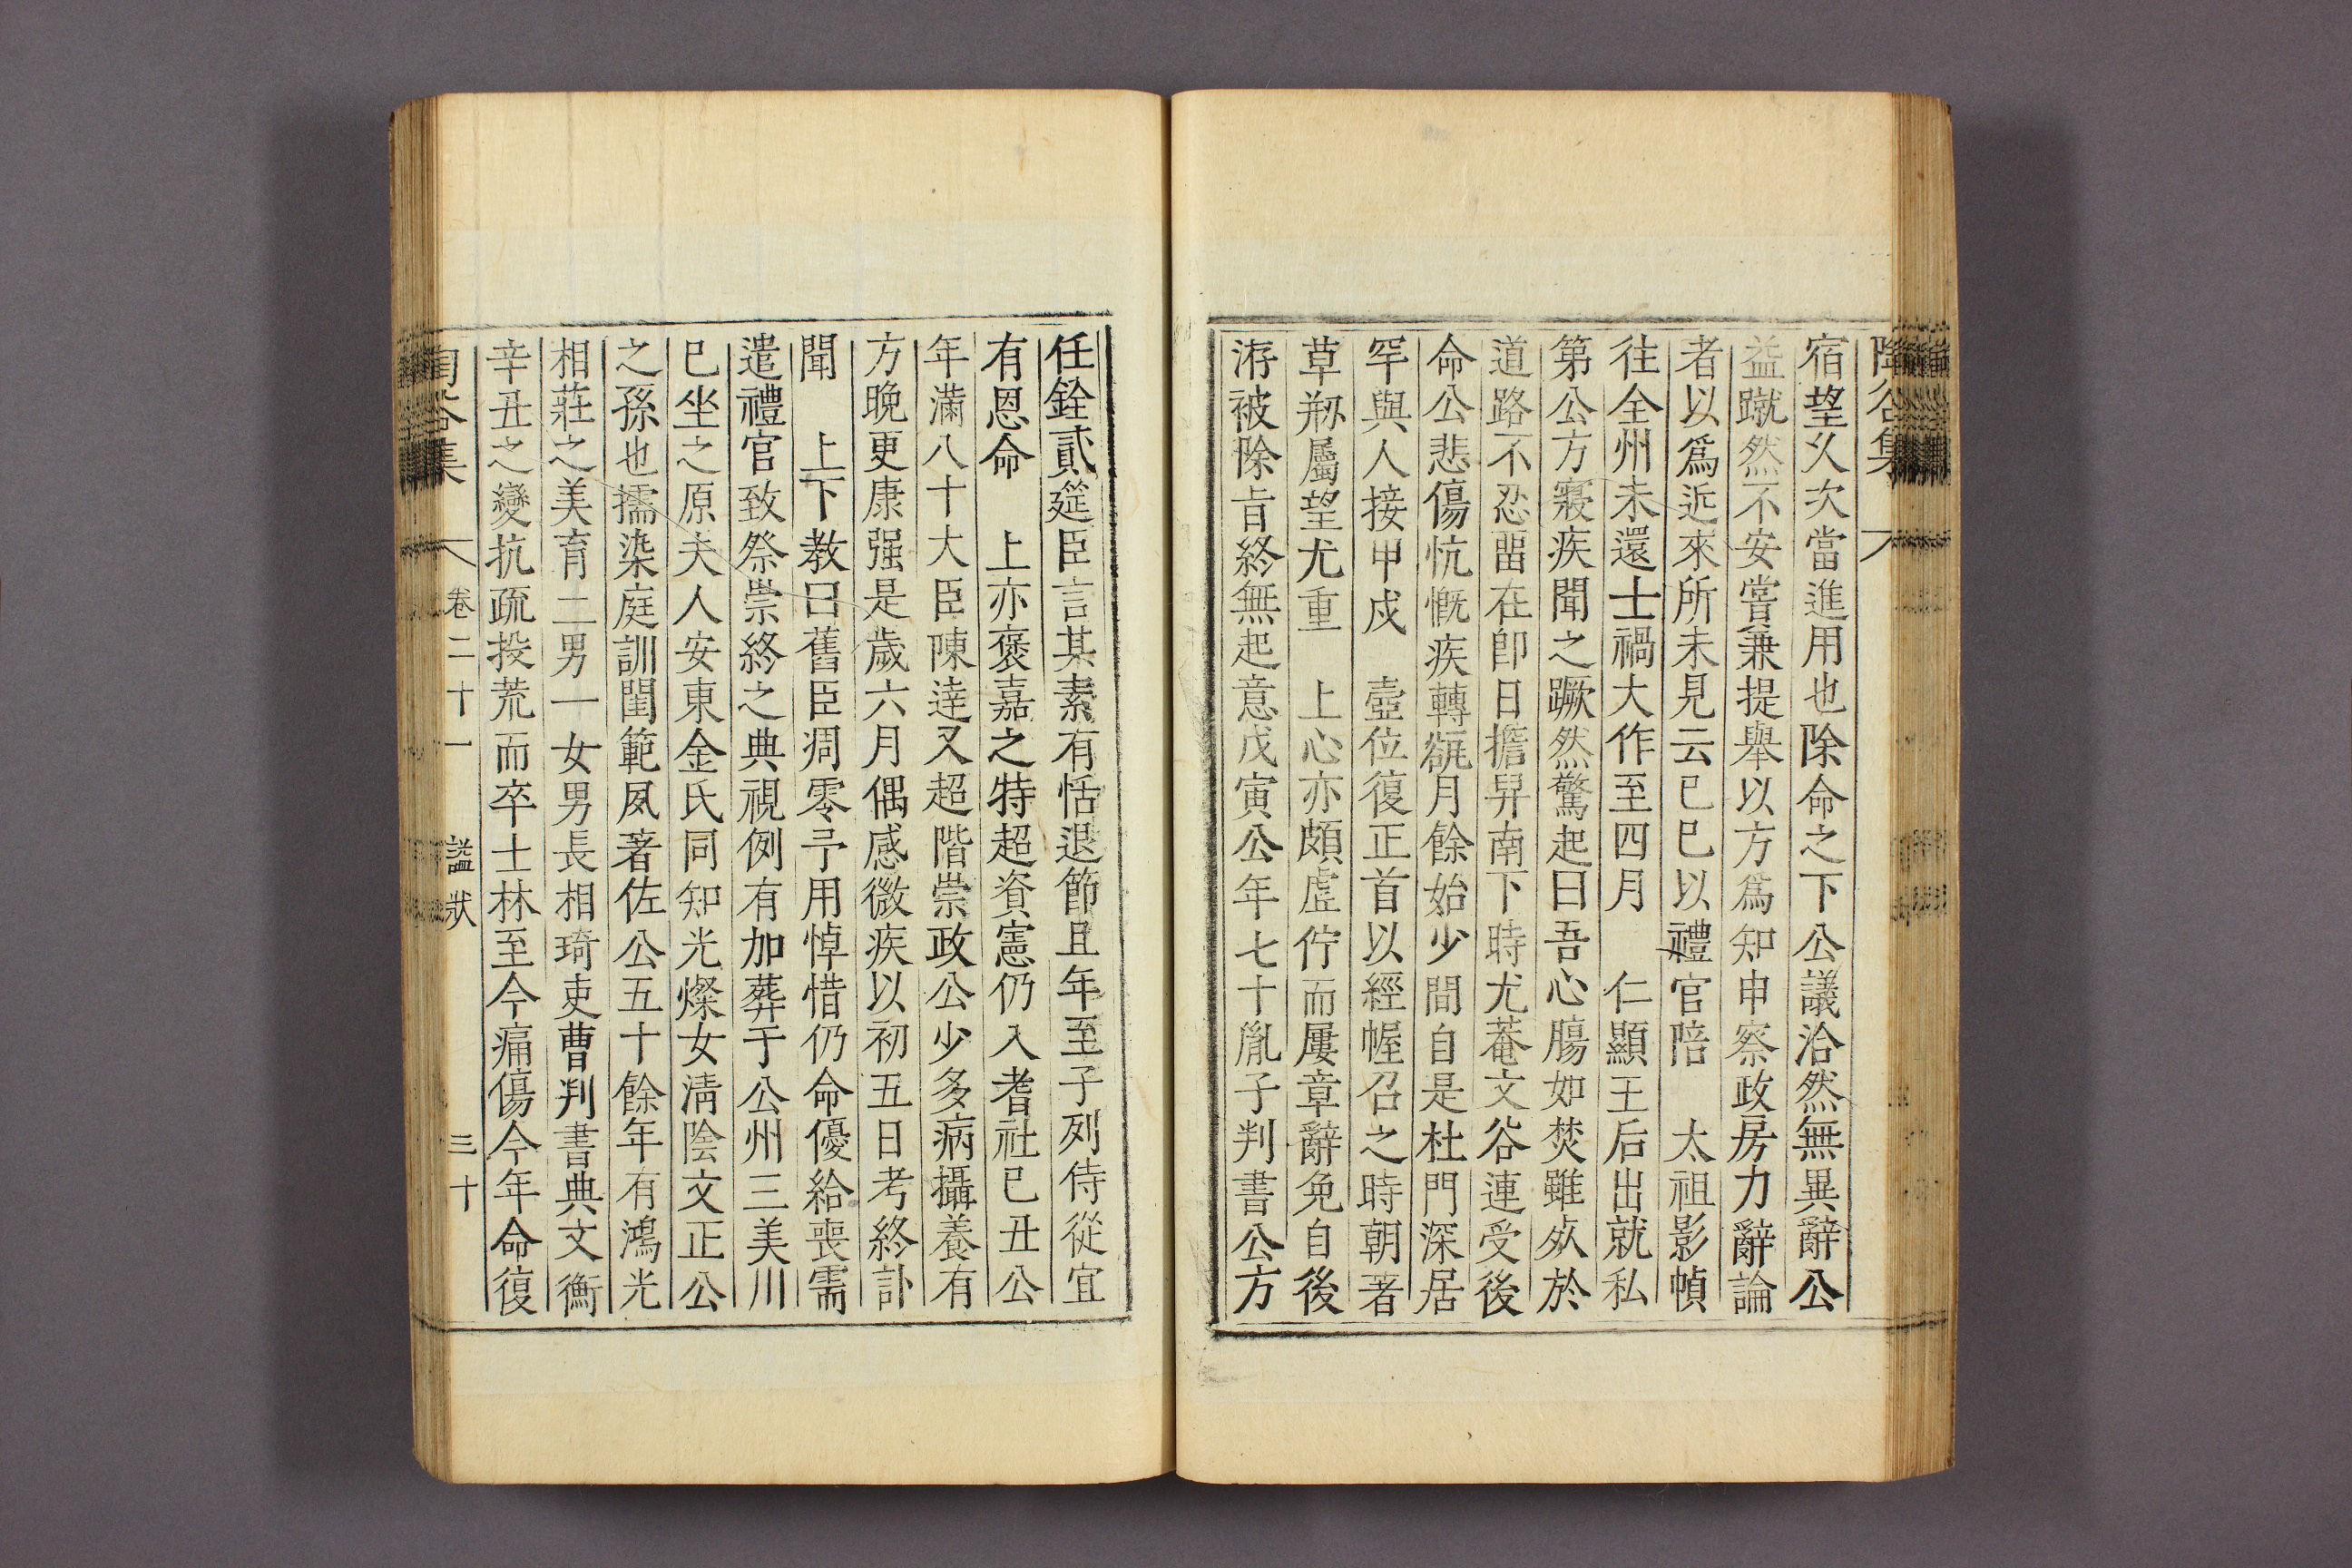 陶谷集
宿望久次當進用也除命之下公議洽然無異辭公
益蹴然不安嘗兼提擧以方爲知申察政房力辭論
者以爲近來所未見云己巳以禮官陪　太祖影幀
往全州未還士禍大作至四月　仁顯王后出就私
第公方寢疾聞之蹶然驚起曰吾心膓如焚雖死於
道路不忍畱在卽日擔舁南下時尤菴文谷連受後
命公悲傷忼慨疾轉㞃月餘始少間自是杜門深居
罕與人接甲戌　壼位復正首以經幄召之時朝著
草刱屬望尤重　上心亦頗虛佇而屢章辭免自後
洊被除旨終無起意戊寅公年七十胤子判書公方
任銓貳筵臣言某素有恬退節且年至子列侍從宜
有恩命　上亦褒嘉之特超資憲仍入耆社己丑公
年滿八十大臣陳達又超階崇政公少多病攝養有
方晩更康强是歲六月偶感微疾以初五日考終訃
聞　上下敎曰舊臣凋零予用悼惜仍命優給喪需
遣禮官致祭崇終之典視例有加葬于公州三美川
巳坐之原夫人安東金氏同知光燦女淸陰文正公
之孫也擩染庭訓閨範夙著佐公五十餘年有鴻光
相莊之美育二男一女男長相琦吏曹判書典文衡
辛丑之變抗疏投荒而卒士林至今痛傷今年命復
陶谷集　卷二十一　諡狀　三十